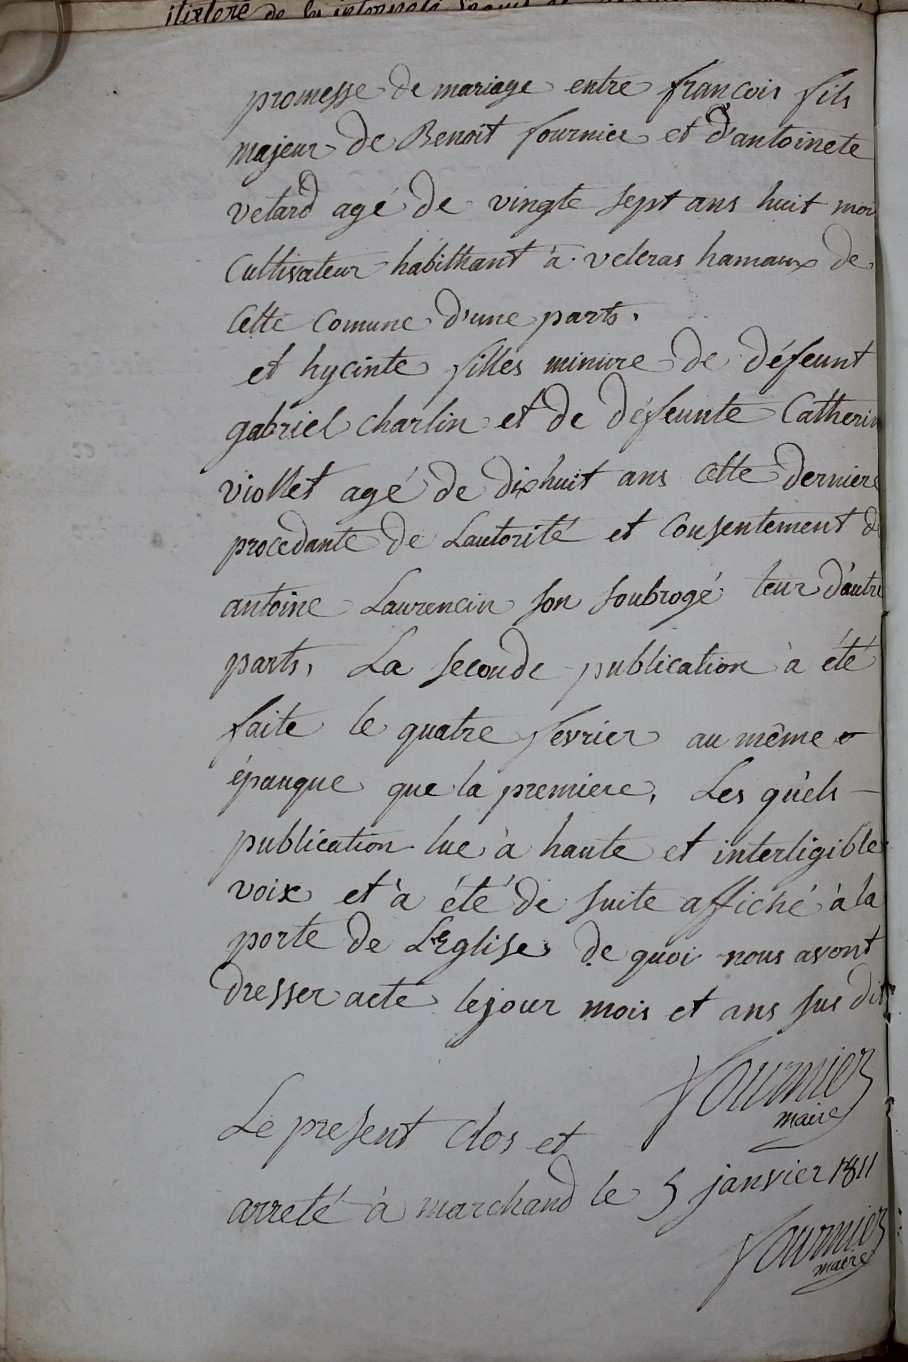 promesse de mariage entre françois fils
majeur de Benoit fournier et d'antoinete
velard agé de vingte sept ans huit moi
Cultivateur habithant à veleras hamaux de
Cette Comune d'une parts.
et hycinte filles minure de défeunt
gabriel charlin et de défeunte Catherin
viollet agé de dix huit ans cette derniere
procedante de Lautorité et Consentement d
antoine Laurencin son soubrogé teur d'autre
parts, La seconde publication à été
faite le quatre fevrier au même
épauque que la premiere, Les quels
publication lue à haute et interligible
voix et à été de suite affiché à la
porte de L'Eglise de quoi nous avont
dresser acte le jour mois et ans sus dit
fournier
maire
Le present Clos et
arreté à marchand le 5 janvier 1811
fournier
maire